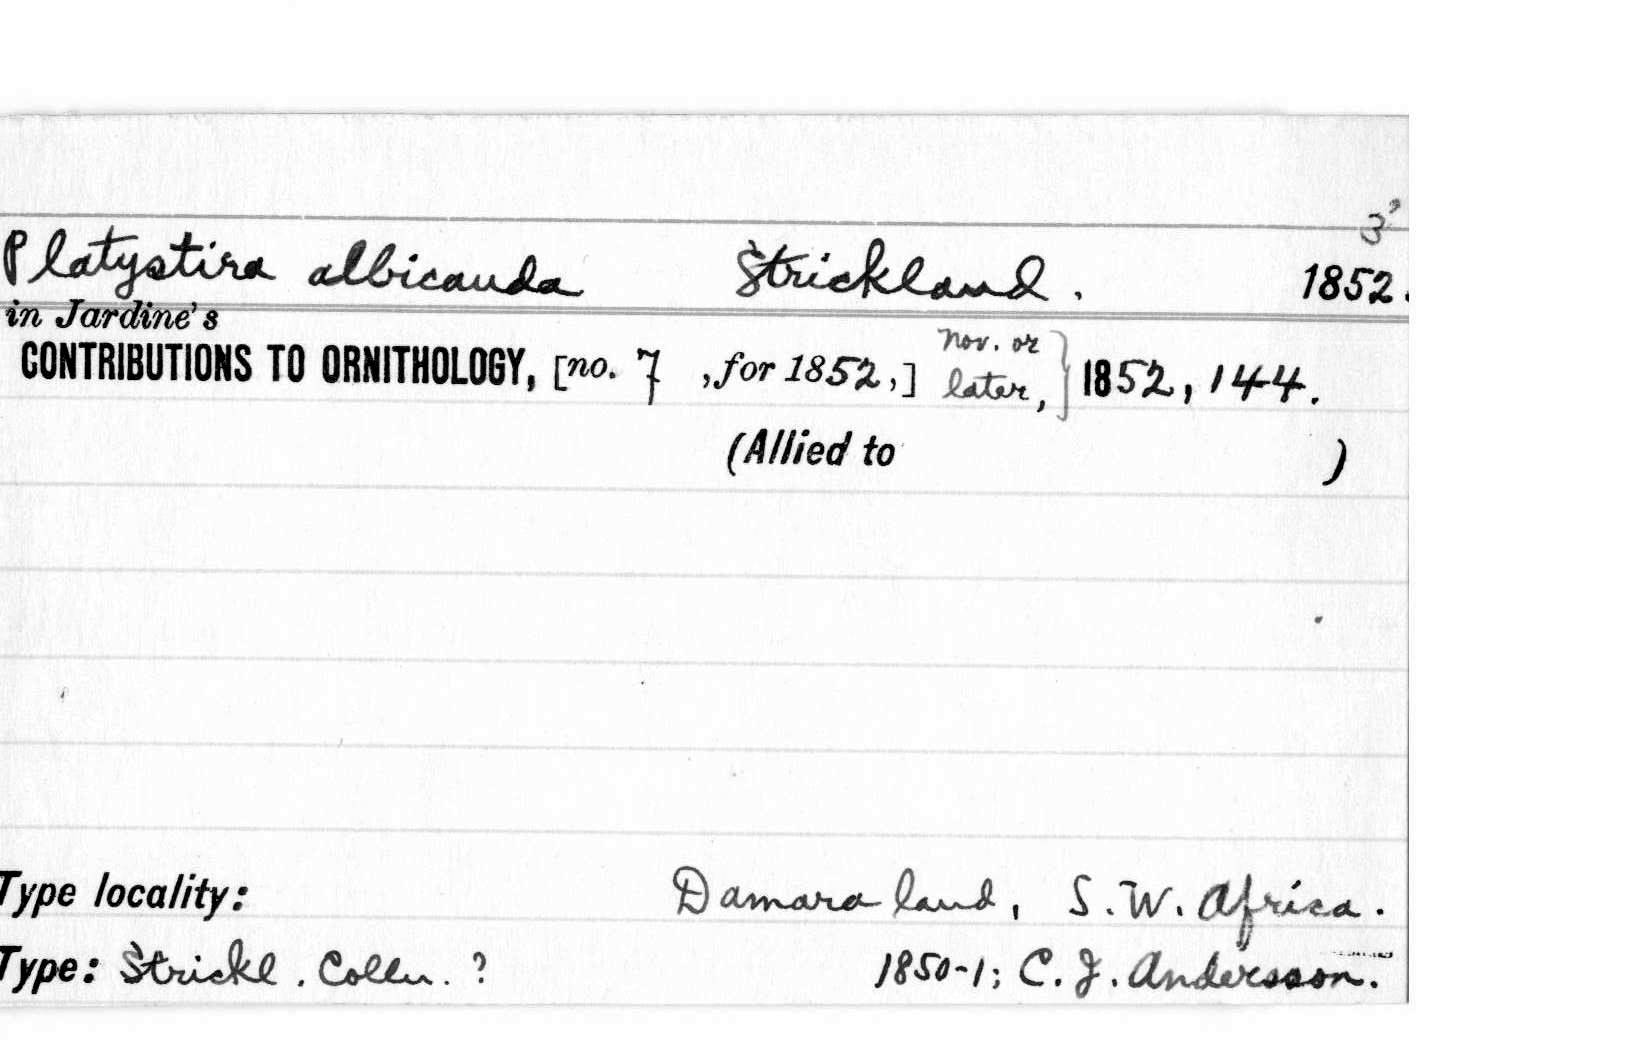 3'
Platystira albicauda Strickland. 1852.
in Jardine's
CONTRIBUTIONS TO ORNITHOLOGY, [no. 7 ,for 1852,] Nov. or later,} 1852, 144.
(Allied to )
Type locality: Damaraland, S.W. Africa.
Type: Strickl. Colln. ? 1850-1; C. J. Andersson.